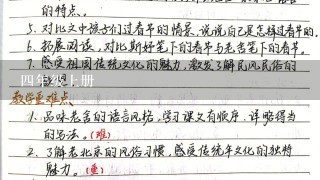 的特点。
5. 对比文中孩子们过春节的情景，说说自己是怎样过春节的。
6. 拓展阅读，对比斯好笔下的春节与老舍笔下的春节。
7. 感受祖国传统文化的魅力，激发了解民风民俗的
四年级上册
教学重难点
1. 品味老舍的语言风格，学习课文有顺序、详略得当
的写法。(难)
2. 了解老北京的风俗习惯，感受传统年文化的独特
魅力。(重)